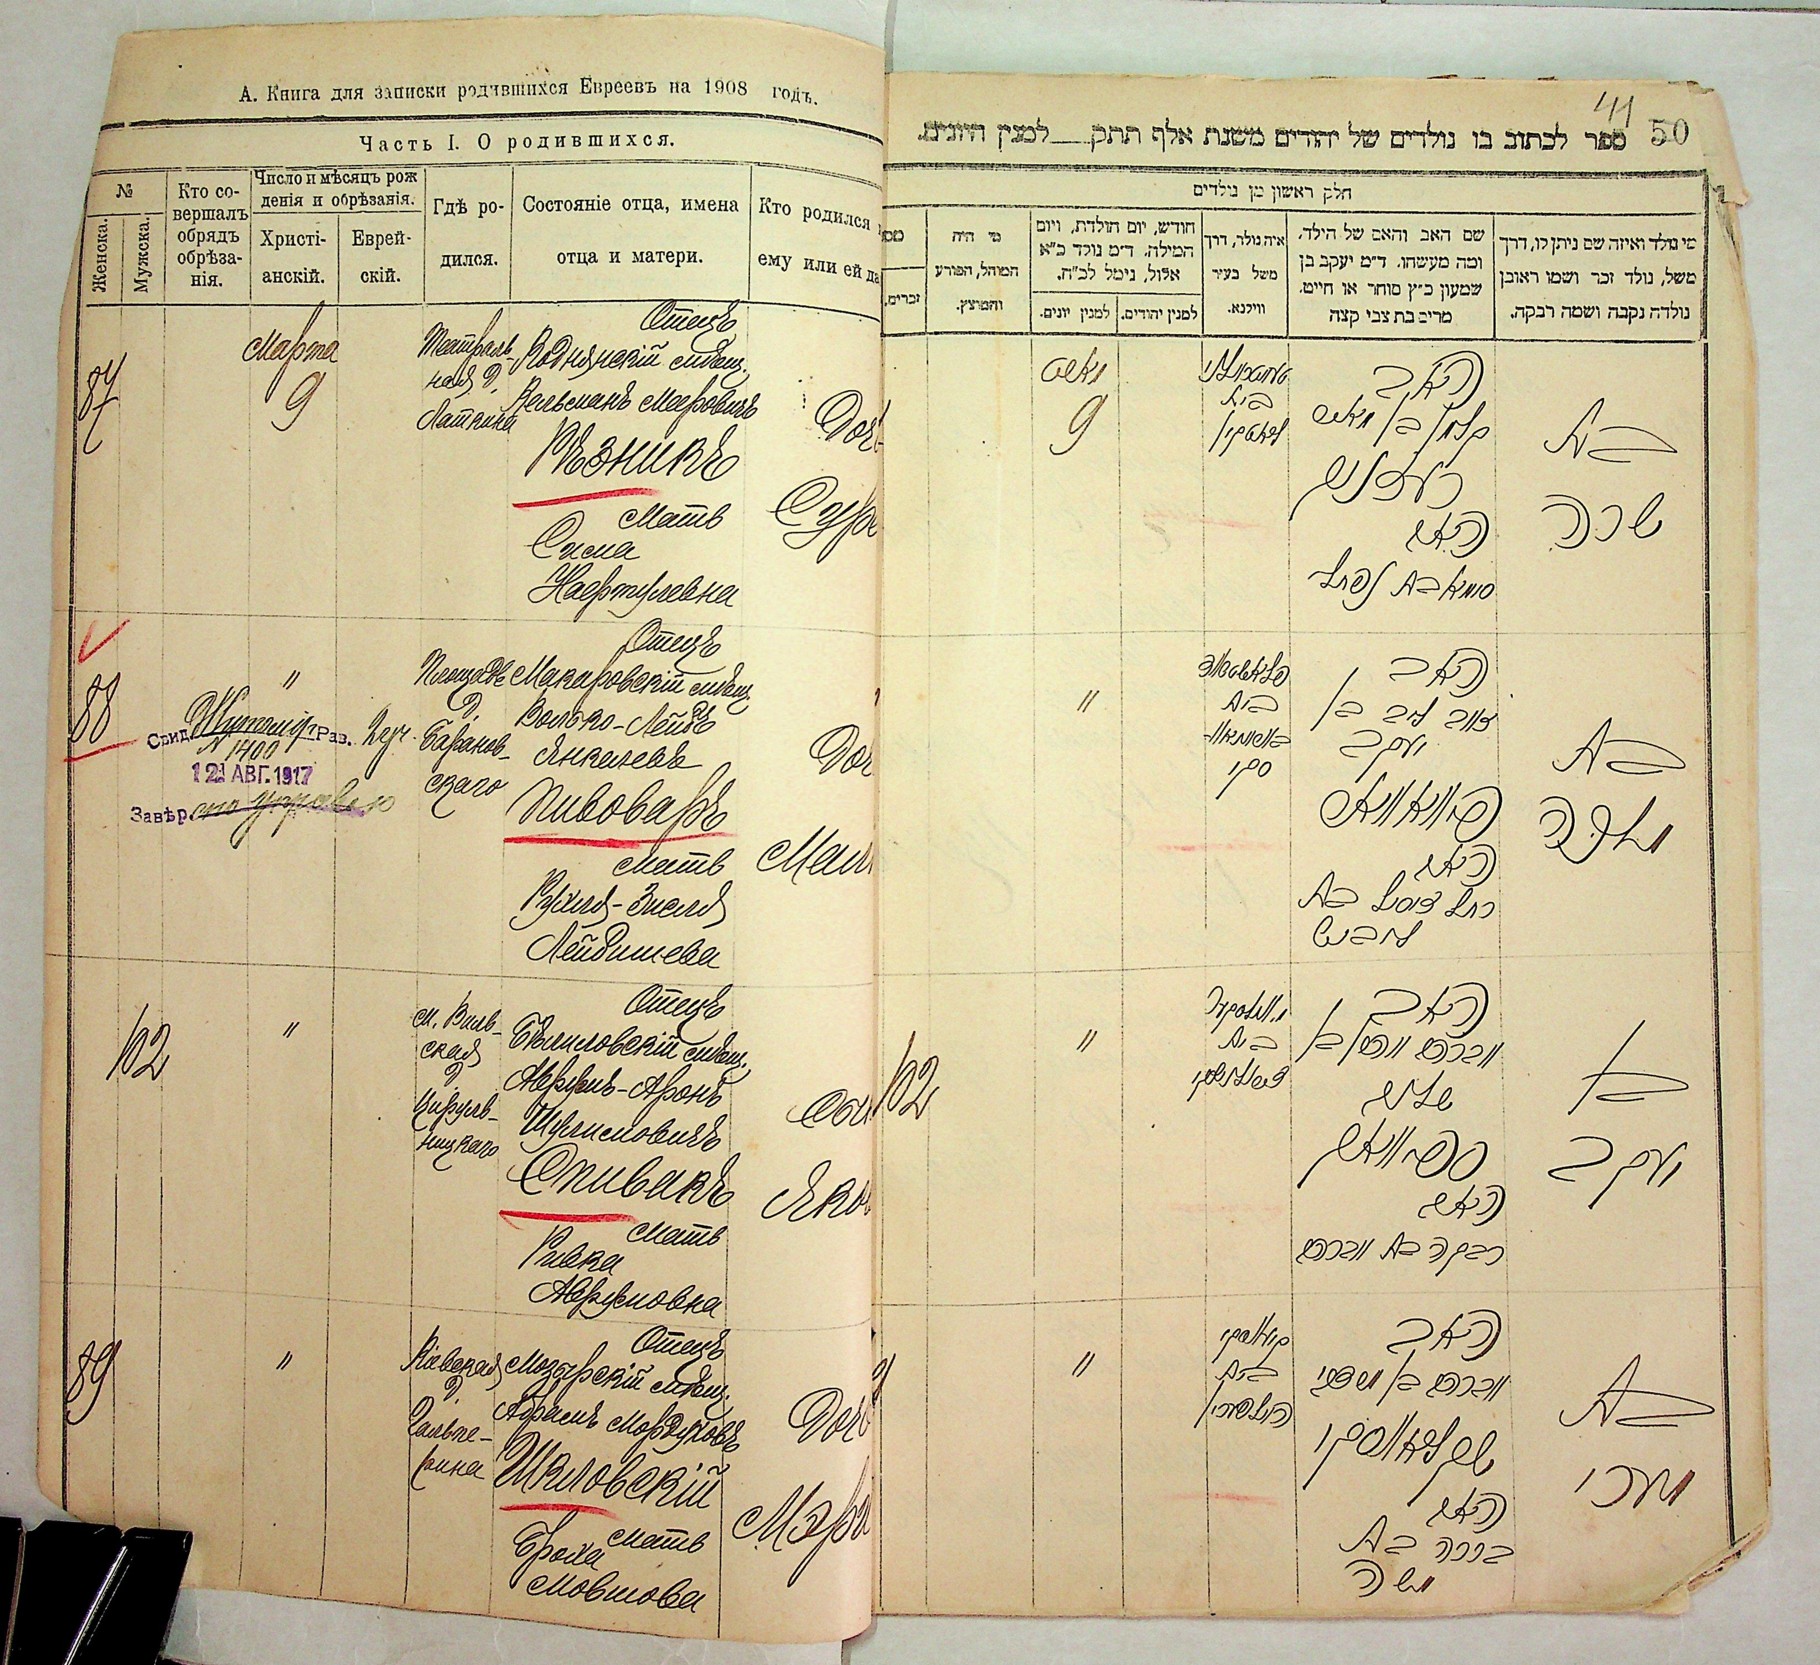 А. Книга для записки родившихся Евреевъ на 1908 годъ.
Часть I. О родившихся.
№
Женска.
Мужска.
Кто со-
вершалъ
обрядъ
обрѣза-
нія.
Число и мѣсяцъ рож
денія и обрѣзанія.
Христі-
анскій.
Еврей-
скій.
Гдѣ ро-
дился.
Состояніе отца, имена
отца и матери.
Кто родился
ему или ей да
87
Марта
9
Театраль-
ная д.
Латкина
Отецъ
Роднянскій мѣщ.
Кельманъ Мееровичъ
Рѣзникъ
Мать
Сима
Нафтулевна
Доч
Сур
88
"
Свид. Житомір. Рав.
N 1400
12 АВГ. 1917
Завѣр.
Площадь
д.
Баранов-
скаго
Отецъ
Макаровскій мѣщ.
Волько-Лейбъ
Янкелевъ
Пивоваръ
Мать
Рухля-Зисля
Лейбишева
Доч
Мал
102
"
М. Виль-
ская
д
Цируль-
ницкаго
Отецъ
Бѣлиловскій мѣщ.
Аврумъ-Аронъ
Шулимовичъ
Спивакъ
Мать
Ривка
Аврумовна
Сы
Яко
89
"
Кіевская
д
Гальпе-
рина
Отецъ
Мозырскій мѣщ.
Абрамъ Мордуховъ
Шкловскій
Мать
Броха
Мовшова
Доч
Мэри
41
50
ספר לכתוב בו נולדים של יהודים משנת אלף תתק למנין היונים.
חלק ראשון מן נולדים
מי נולד ואיזה שם ניתן לו, דרך
משל, נולד זכר ושמו ראובן
נולדה נקבה ושמה רבקה.
שם האב והאם של הילד,
ומה מעשהו. ד״מ יעקב בן
שמעון כ״ץ סוחר או חייט.
מרים בת צבי קצה
איה נולד, דרך
משל בעיר
ווילנא.
חודש, יום הולדת, ויום
המילה. ד״מ נולד כ״א
אלול, נימל לכ״ח.
למנין יהודים.
למנין יונים.
מי היה
המוהל, הפורע
והמוצץ.
מספ
זכרים.
בת
שרה
האב
קלמן בן מאיר
רעזניק
האם
סימא בת נפתלי
בית
מארט
9
בת
מלכה
האב
זאב ליב בן
יעקב
פיוואוואר
האם
רחל זיסל בת
ליביש
בית
"
בן
יעקב
האב
אברהם אהרן בן
שלום
ספיוואק
האם
רבקה בת אברהם
בית
"
102
בת
מערי
האב
אברהם בן מרדכי
שקלאווסקי
האם
ברכה בת
משה
בית
"